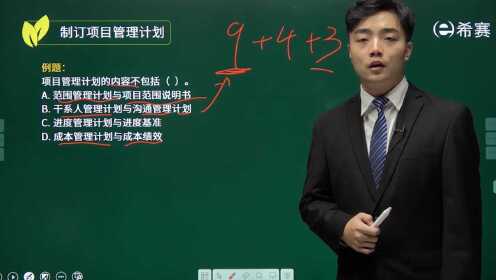 制订项目管理计划
希赛
9+4+3
例题：
项目管理计划的内容不包括（ ）。
A. 范围管理计划与项目范围说明书
B. 干系人管理计划与沟通管理计划
C. 进度管理计划与进度基准
D. 成本管理计划与成本绩效